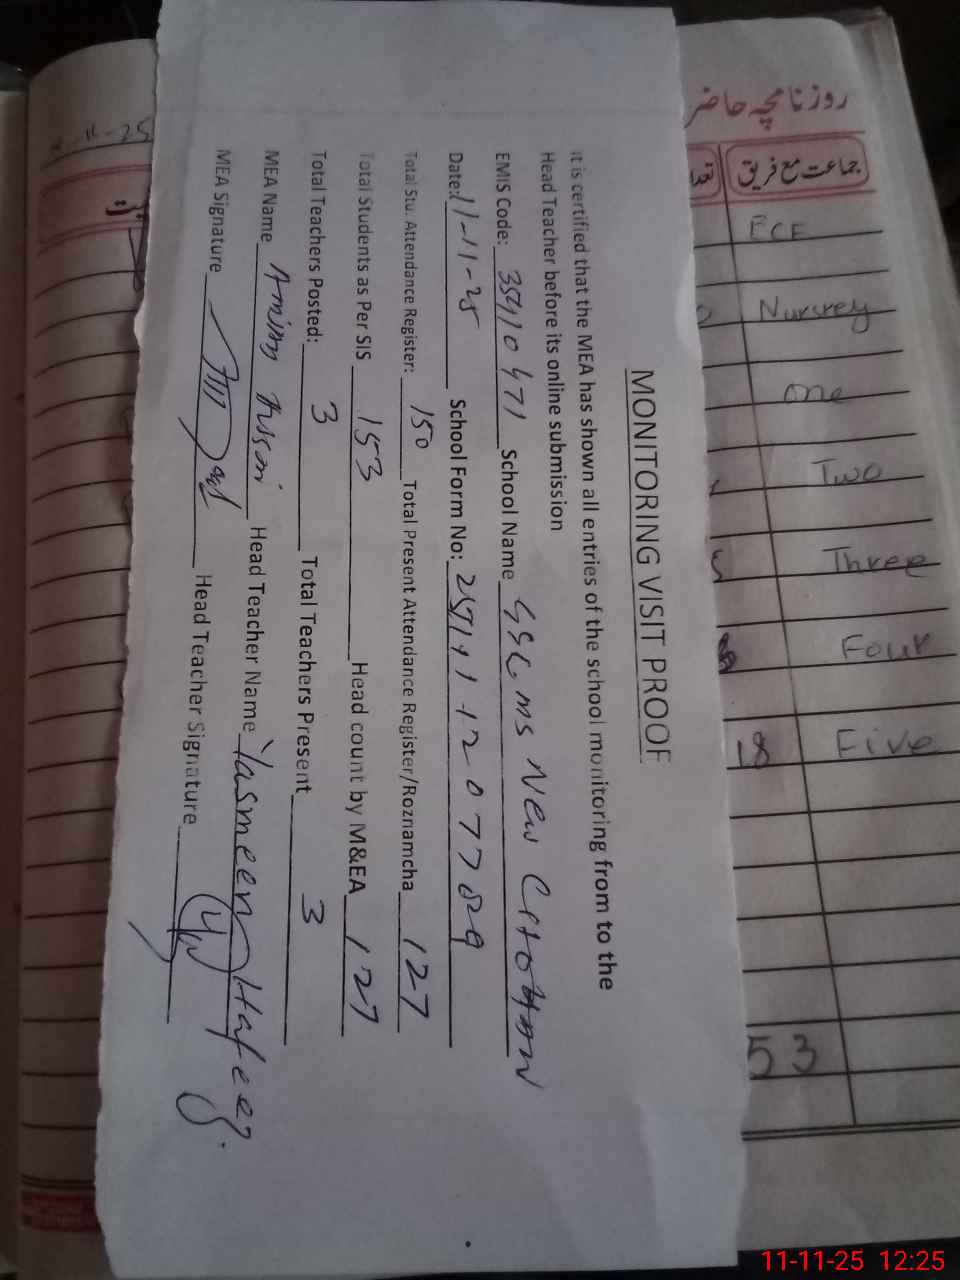 MONITORING VISIT PROOF
It is certified that the MEA has shown all entries of the school monitoring from to the
Head Teacher before its online submission
EMIS Code: 35410471 School Name
Date: 11-11-25 School Form No:
Total Stu. Attendance Register: 150 Total Present Attendance Register/Roznamcha 127
Total Students as Per SIS 153 Head count by M&EA 127
Total Teachers Posted: 3 Total Teachers Present 3
MEA Name Head Teacher Name Yasmeen Hafeez.
MEA Signature Head Teacher Signature
روزنامچہ حاضر
جماعت مع فریق
ECE
Nursrey
one
Two
Three
Four
Five 18
53
11-11-25 12:25